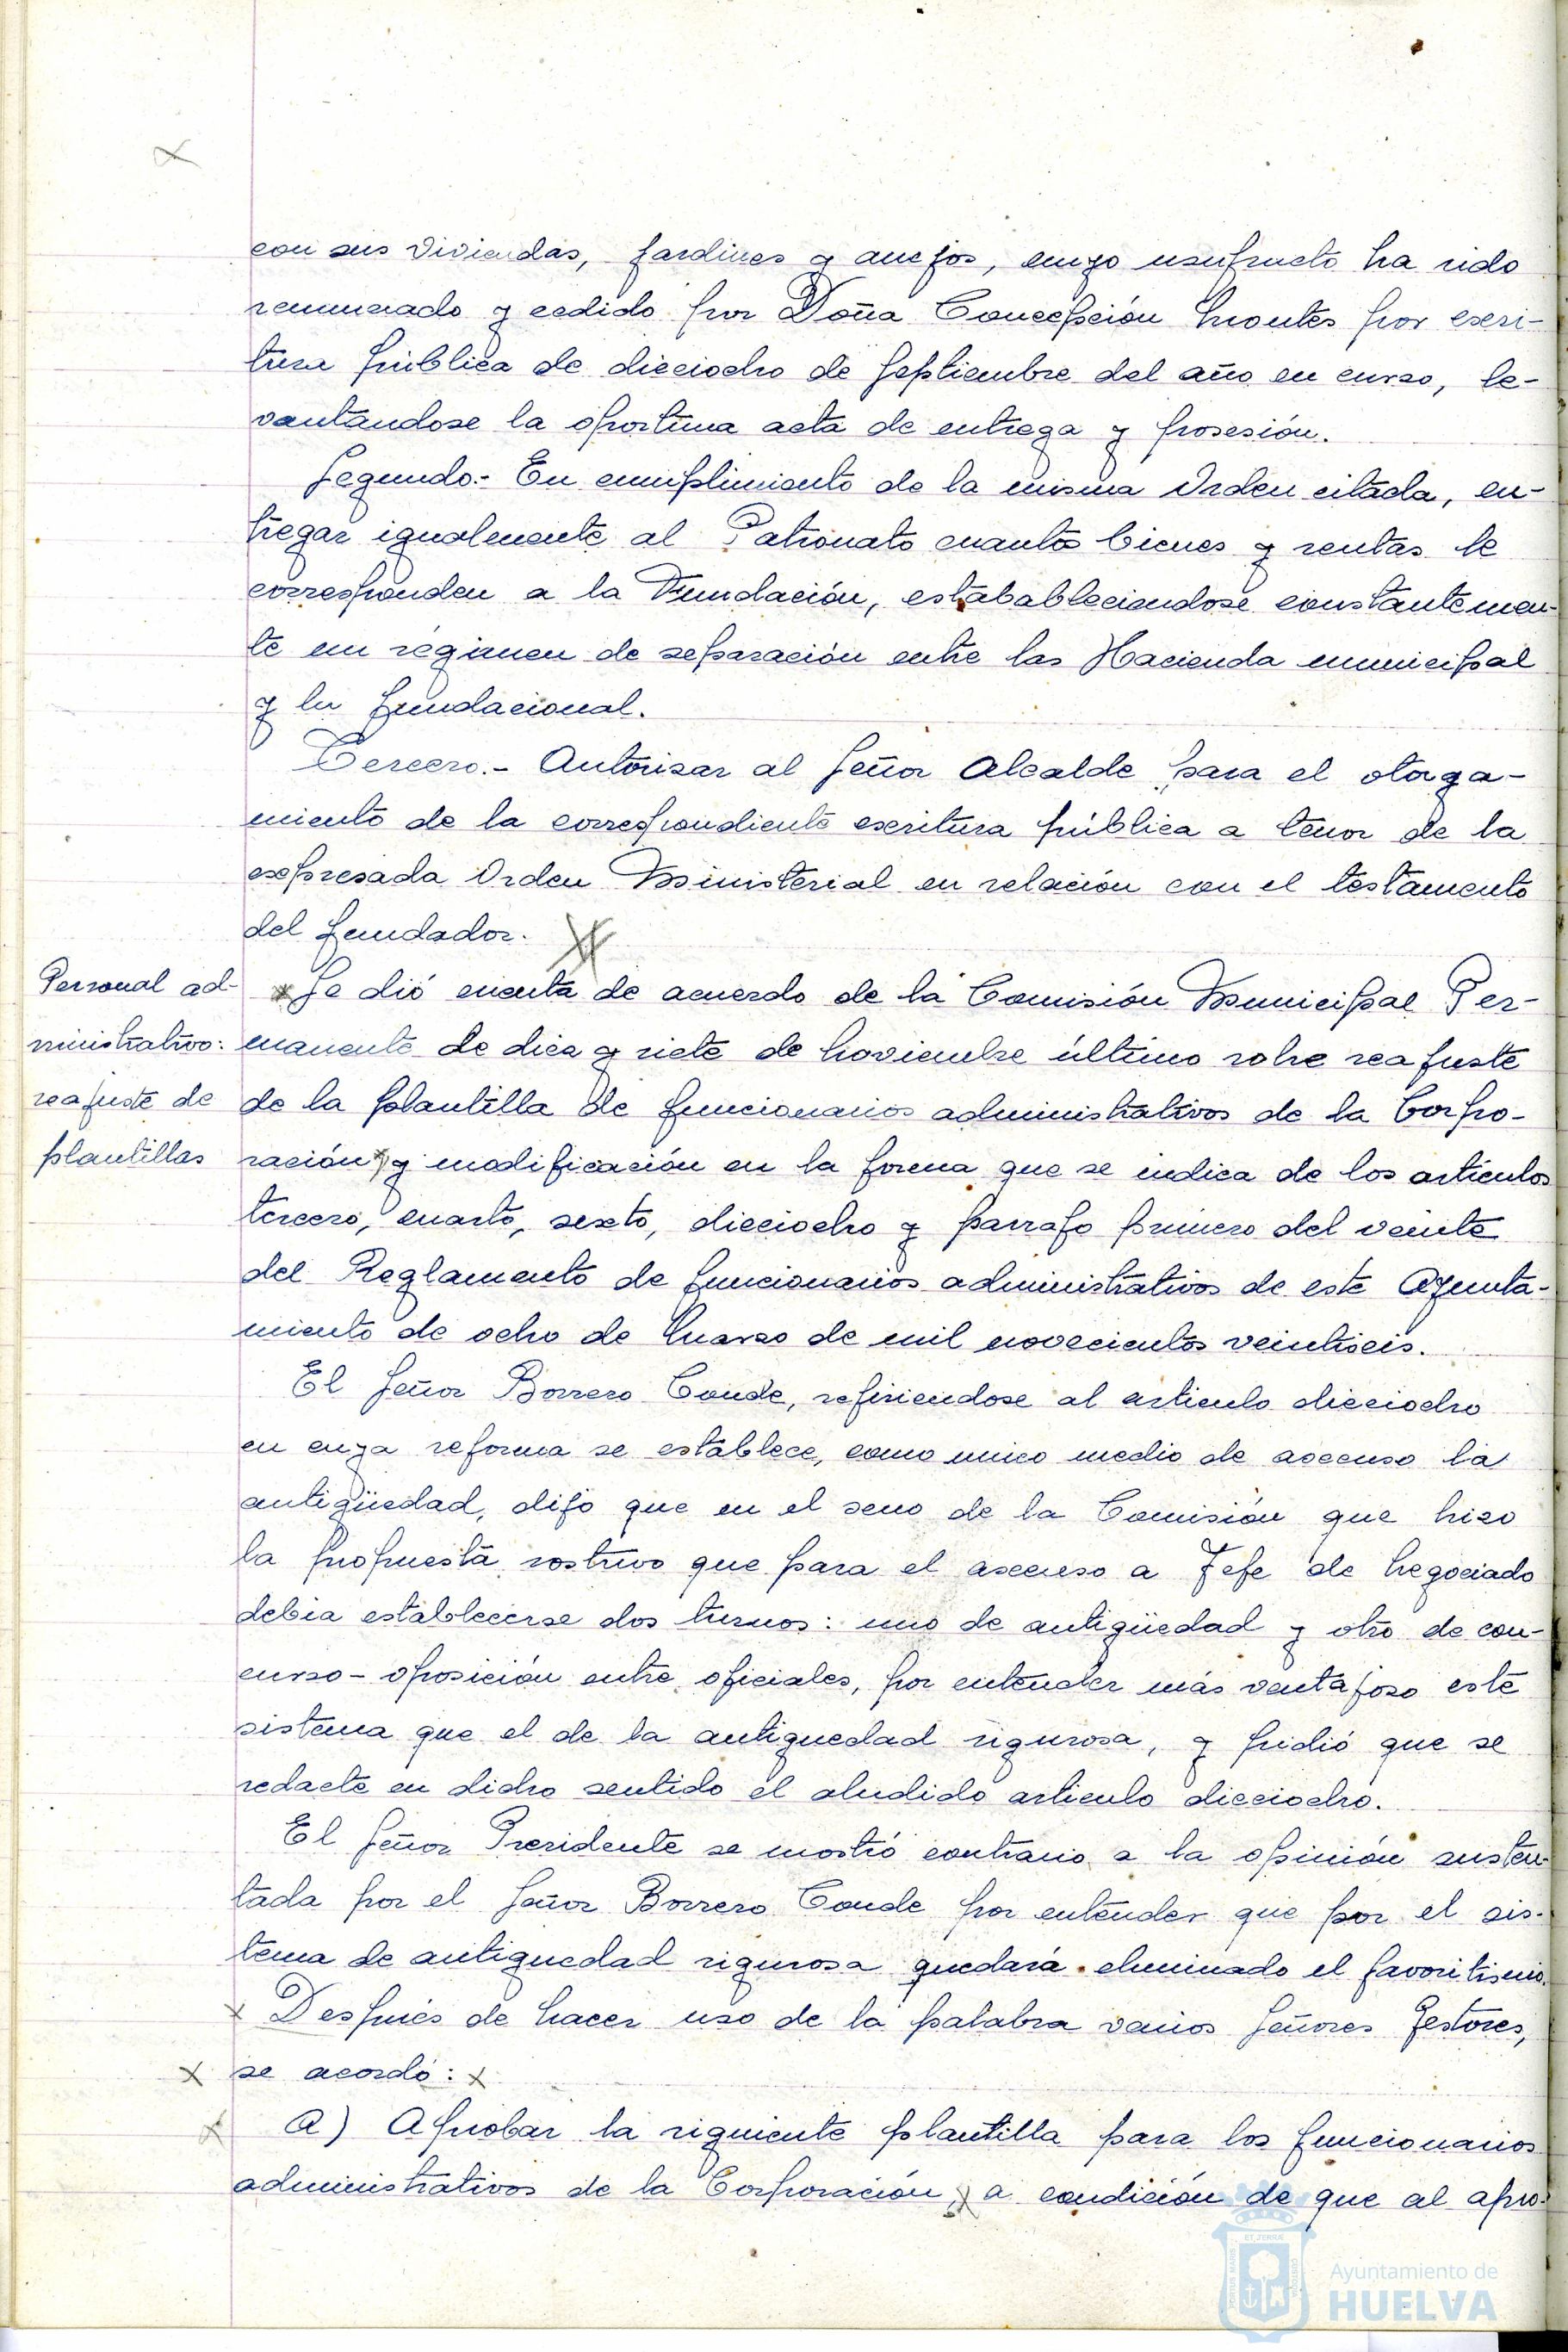 con sus viviendas, jardines y anejos, cuyo usufructo ha sido
renunciado y cedido por Doña Concepción Montes por escri-
tura pública de dieciocho de Septiembre del año en curso, le-
vantándose la oportuna acta de entrega y posesión.
Segundo.- En cumplimiento de la misma Orden citada, en-
tregar igualmente al Patronato cuantos bienes y rentas le
corresponden a la Fundación, estabableciendose constantemen-
te un régimen de separación entre las Hacienda municipal
y la fundacional.
Tercero.- Autorizar al Señor Alcalde para el otorga-
miento de la correspondiente escritura pública a tenor de la
expresada Orden Ministerial en relación con el testamento
del fundador.
Personal ad-
ministrativo:
reajuste de
plantillas
Se dió cuenta de acuerdo de la Comisión Municipal Per-
manente de diez y siete de Noviembre último sobre reajuste
de la plantilla de funcionarios administrativos de la Corpo-
ración, y modificación en la forma que se indica de los artículos
tercero, cuarto, sexto, dieciocho y parrafo primero del veinte
del Reglamento de funcionarios administrativos de este Ayunta-
miento de ocho de Marzo de mil novecientos veintiseis.
El Señor Borrero Conde, refiriendose al articulo dieciocho
en cuya reforma se establece, como unico medio de ascenso la
antigüedad, dijo que en el seno de la Comisión que hizo
la propuesta sostuvo que para el ascenso a Jefe de Negociado
debia establecerse dos turnos: uno de antigüedad y otro de con-
curso-oposición entre oficiales, por entender más ventajoso este
sistema que el de la antiguedad rigurosa, y pidió que se
redacte en dicho sentido el aludido articulo dieciocho.
El Señor Presidente se mostró contrario a la opinión susten-
tada por el Señor Borrero Conde por entender que por el sis-
tema de antiguedad rigurosa quedará eliminado el favoritismo.
Después de hacer uso de la palabra varios Señores Gestores,
se acordó:
A) Aprobar la siguiente plantilla para los funcionarios
administrativos de la Corporación, a condición de que al apro-
Ayuntamiento de
HUELVA